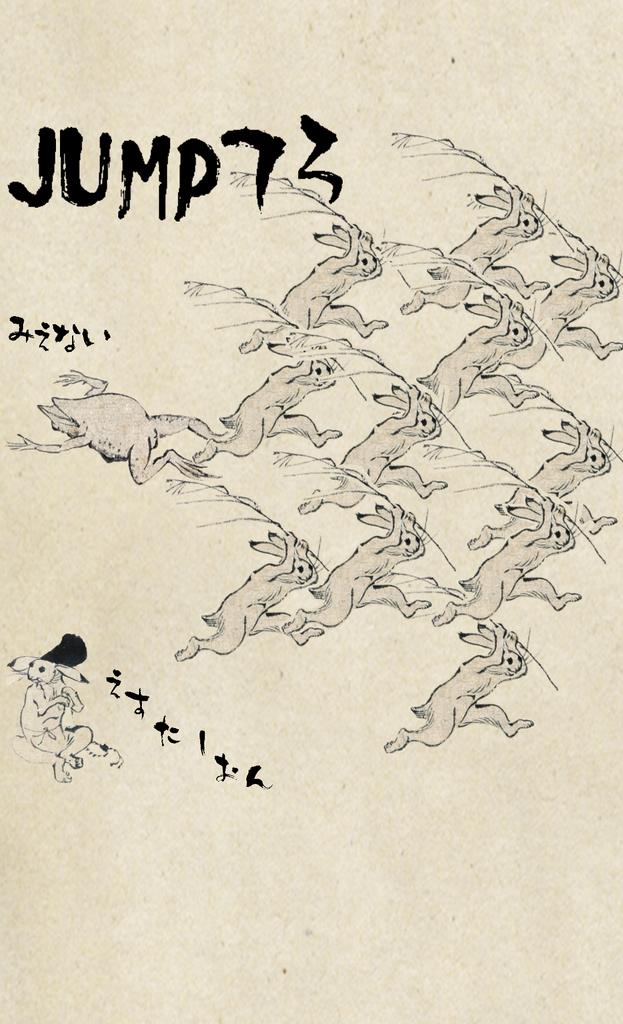 JUMPする
みえない
えすたしおん